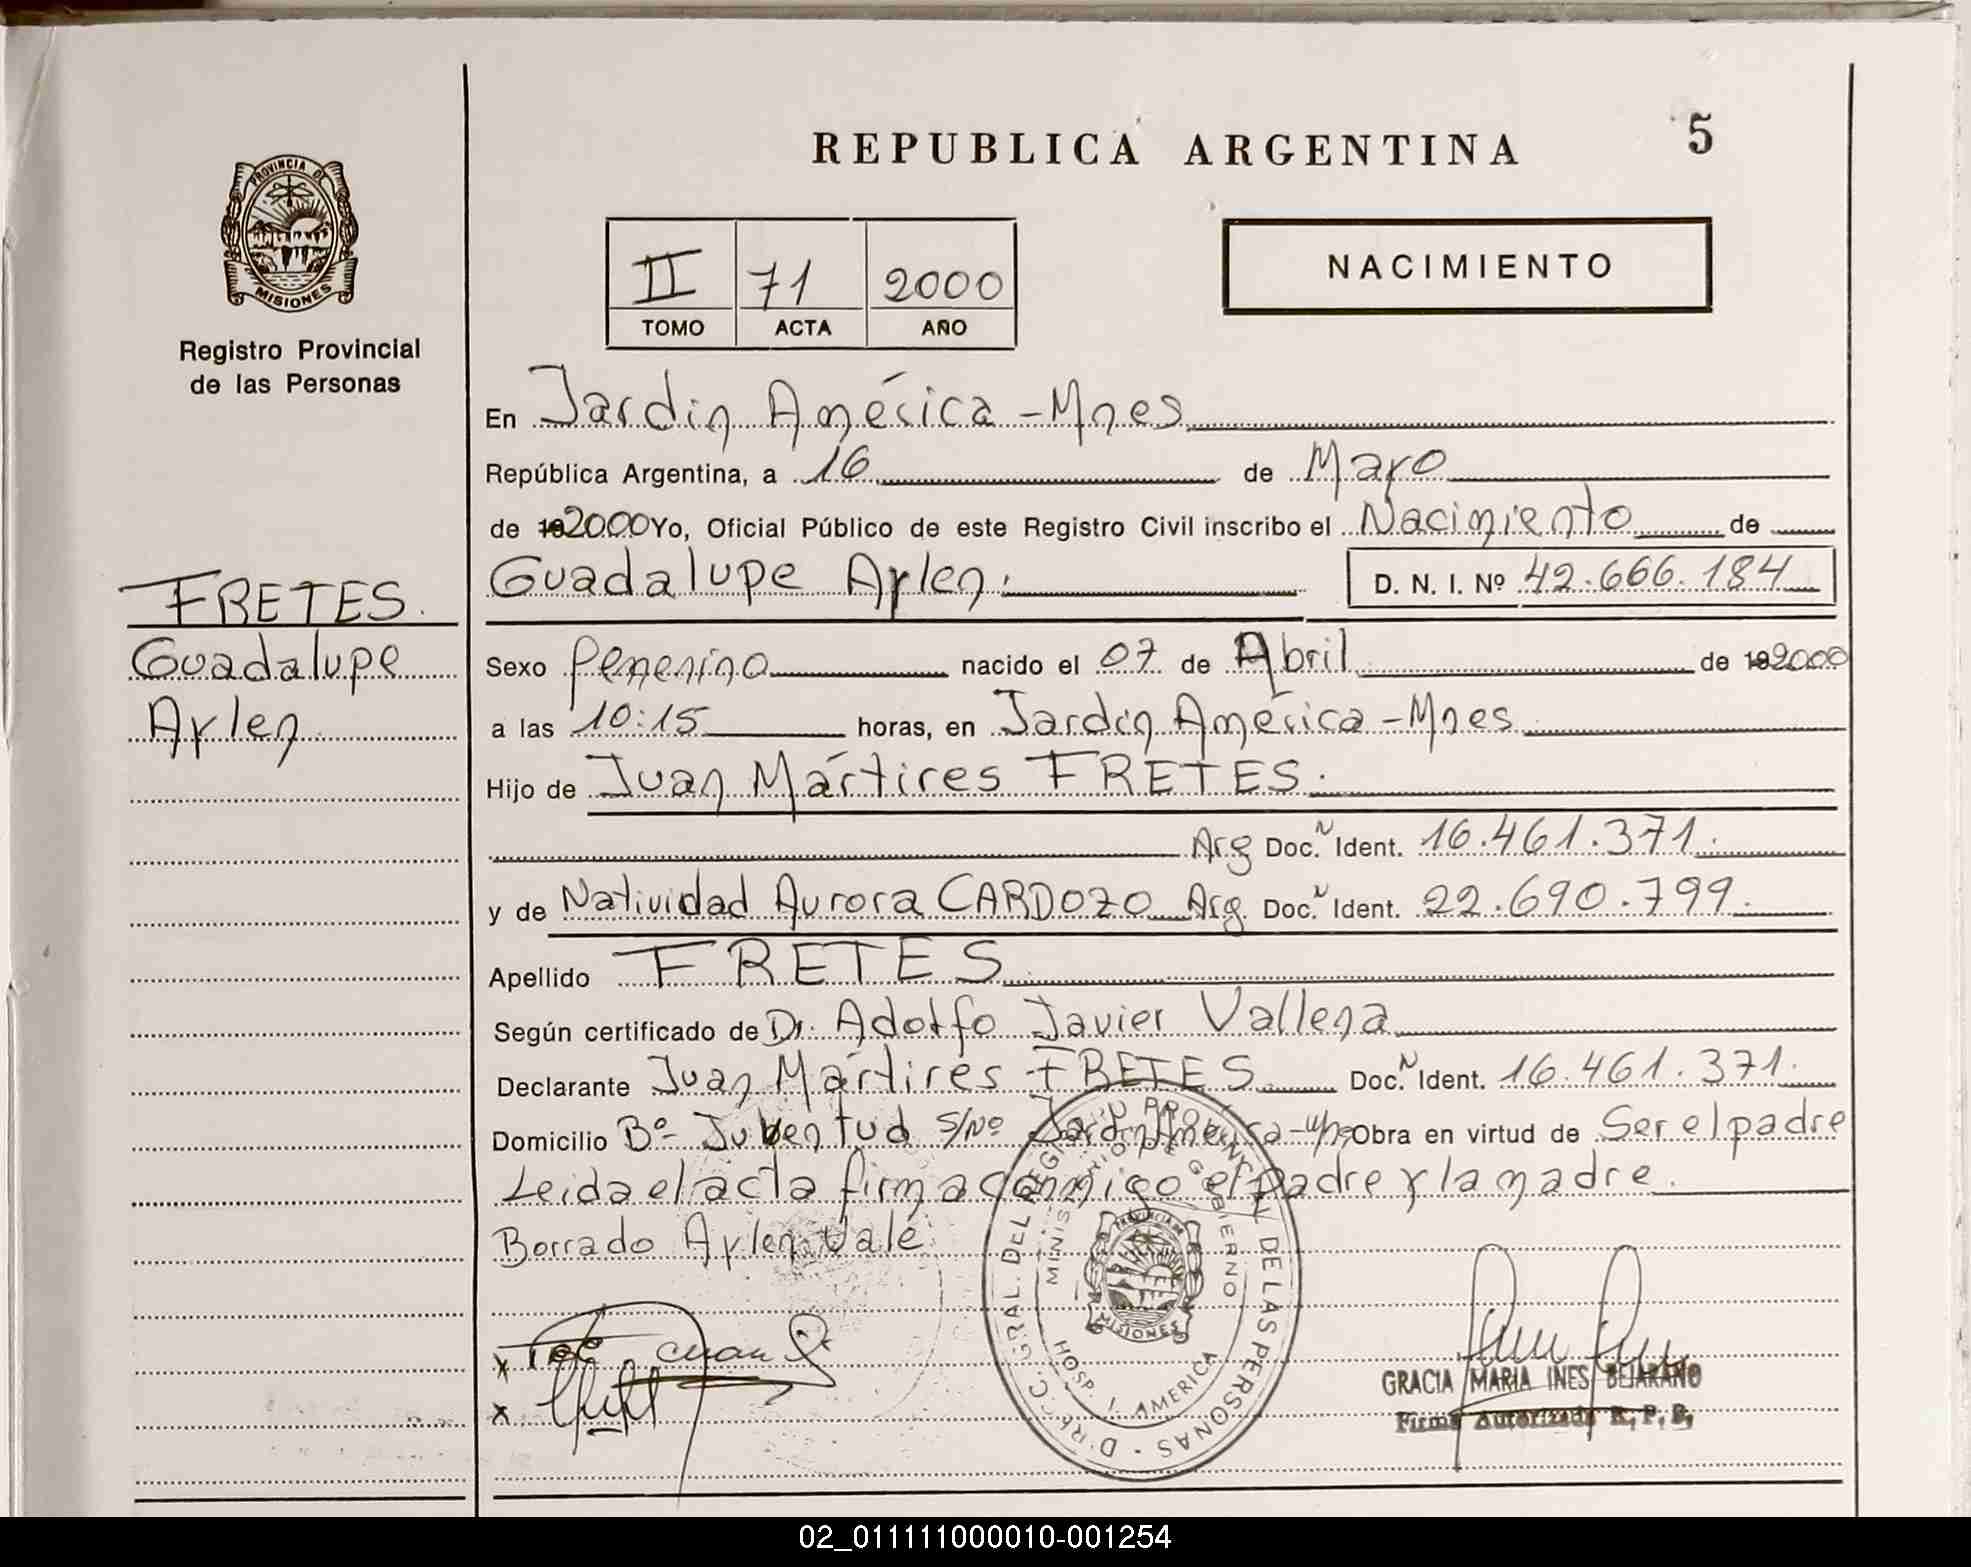 REPUBLICA ARGENTINA 5
PROVINCIA DE
MISIONES
Registro Provincial
de las Personas
II 71 2000
TOMO ACTA AÑO
NACIMIENTO
En Jardin América - Mnes
República Argentina, a 16 de Mayo
de 192000 Yo, Oficial Público de este Registro Civil inscribo el Nacimiento de
Guadalupe Aylen. D. N. I. Nº 42.666.184
FRETES.
Guadalupe
Aylen
Sexo femenino nacido el 07 de Abril de 192000
a las 10:15 horas, en Jardin América - Mnes
Hijo de Juan Mártires FRETES.
Arg Doc. N Ident. 16.461.371.
y de Natividad Aurora CARDOZO Arg. Doc. N Ident. 22.690.799.
Apellido FRETES
Según certificado de Dr. Adolfo Javier Vallena
Declarante Juan Mártires FRETES Doc. N Ident. 16.461.371.
Domicilio Bº Juventud S/Nº Jardin América - Obra en virtud de Ser el padre
Leida el acta firma conmigo el padre y la madre.
Borrado Aylen Vale
DIREC. GRAL. DEL REGISTRO PROVINCIAL DE LAS PERSONAS
MINISTERIO DE GOBIERNO
PROVINCIA DE
MISIONES
HOSP. J. AMERICA
x
x
GRACIA MARIA INES BEJARANO
Firma Autorizada R. P. P.
02_011111000010-001254